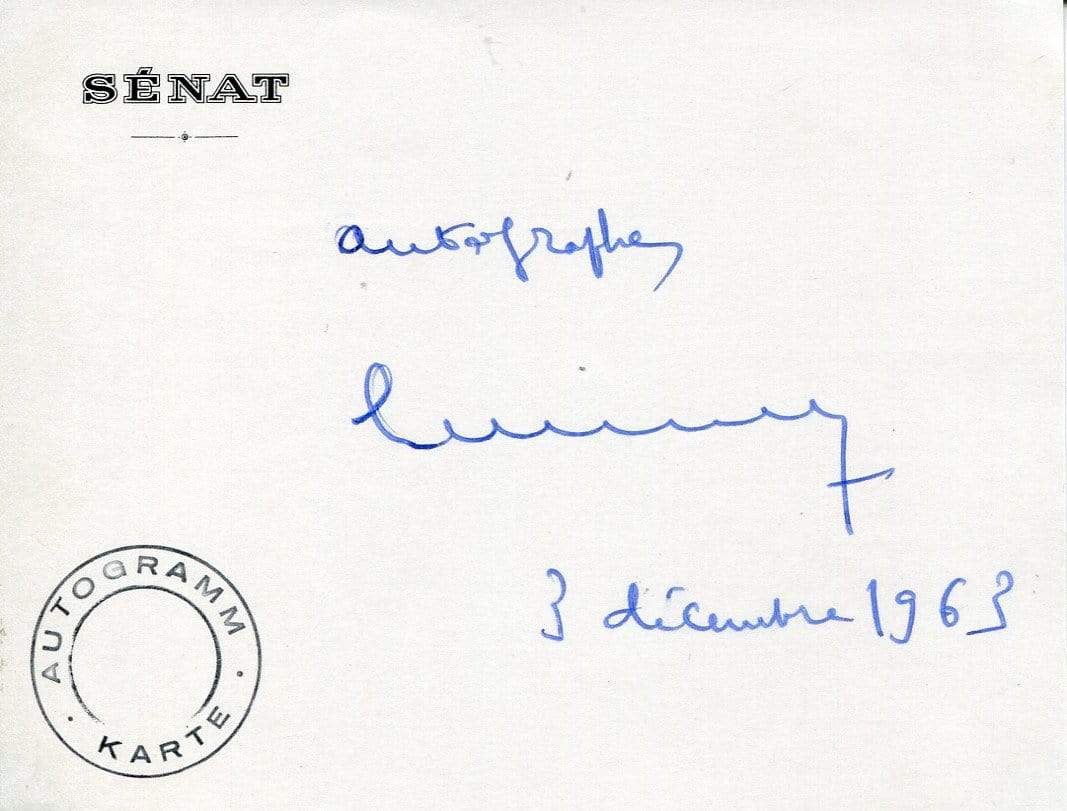 SÉNAT
autographe
3 décembre 1963
AUTOGRAMM
KARTE